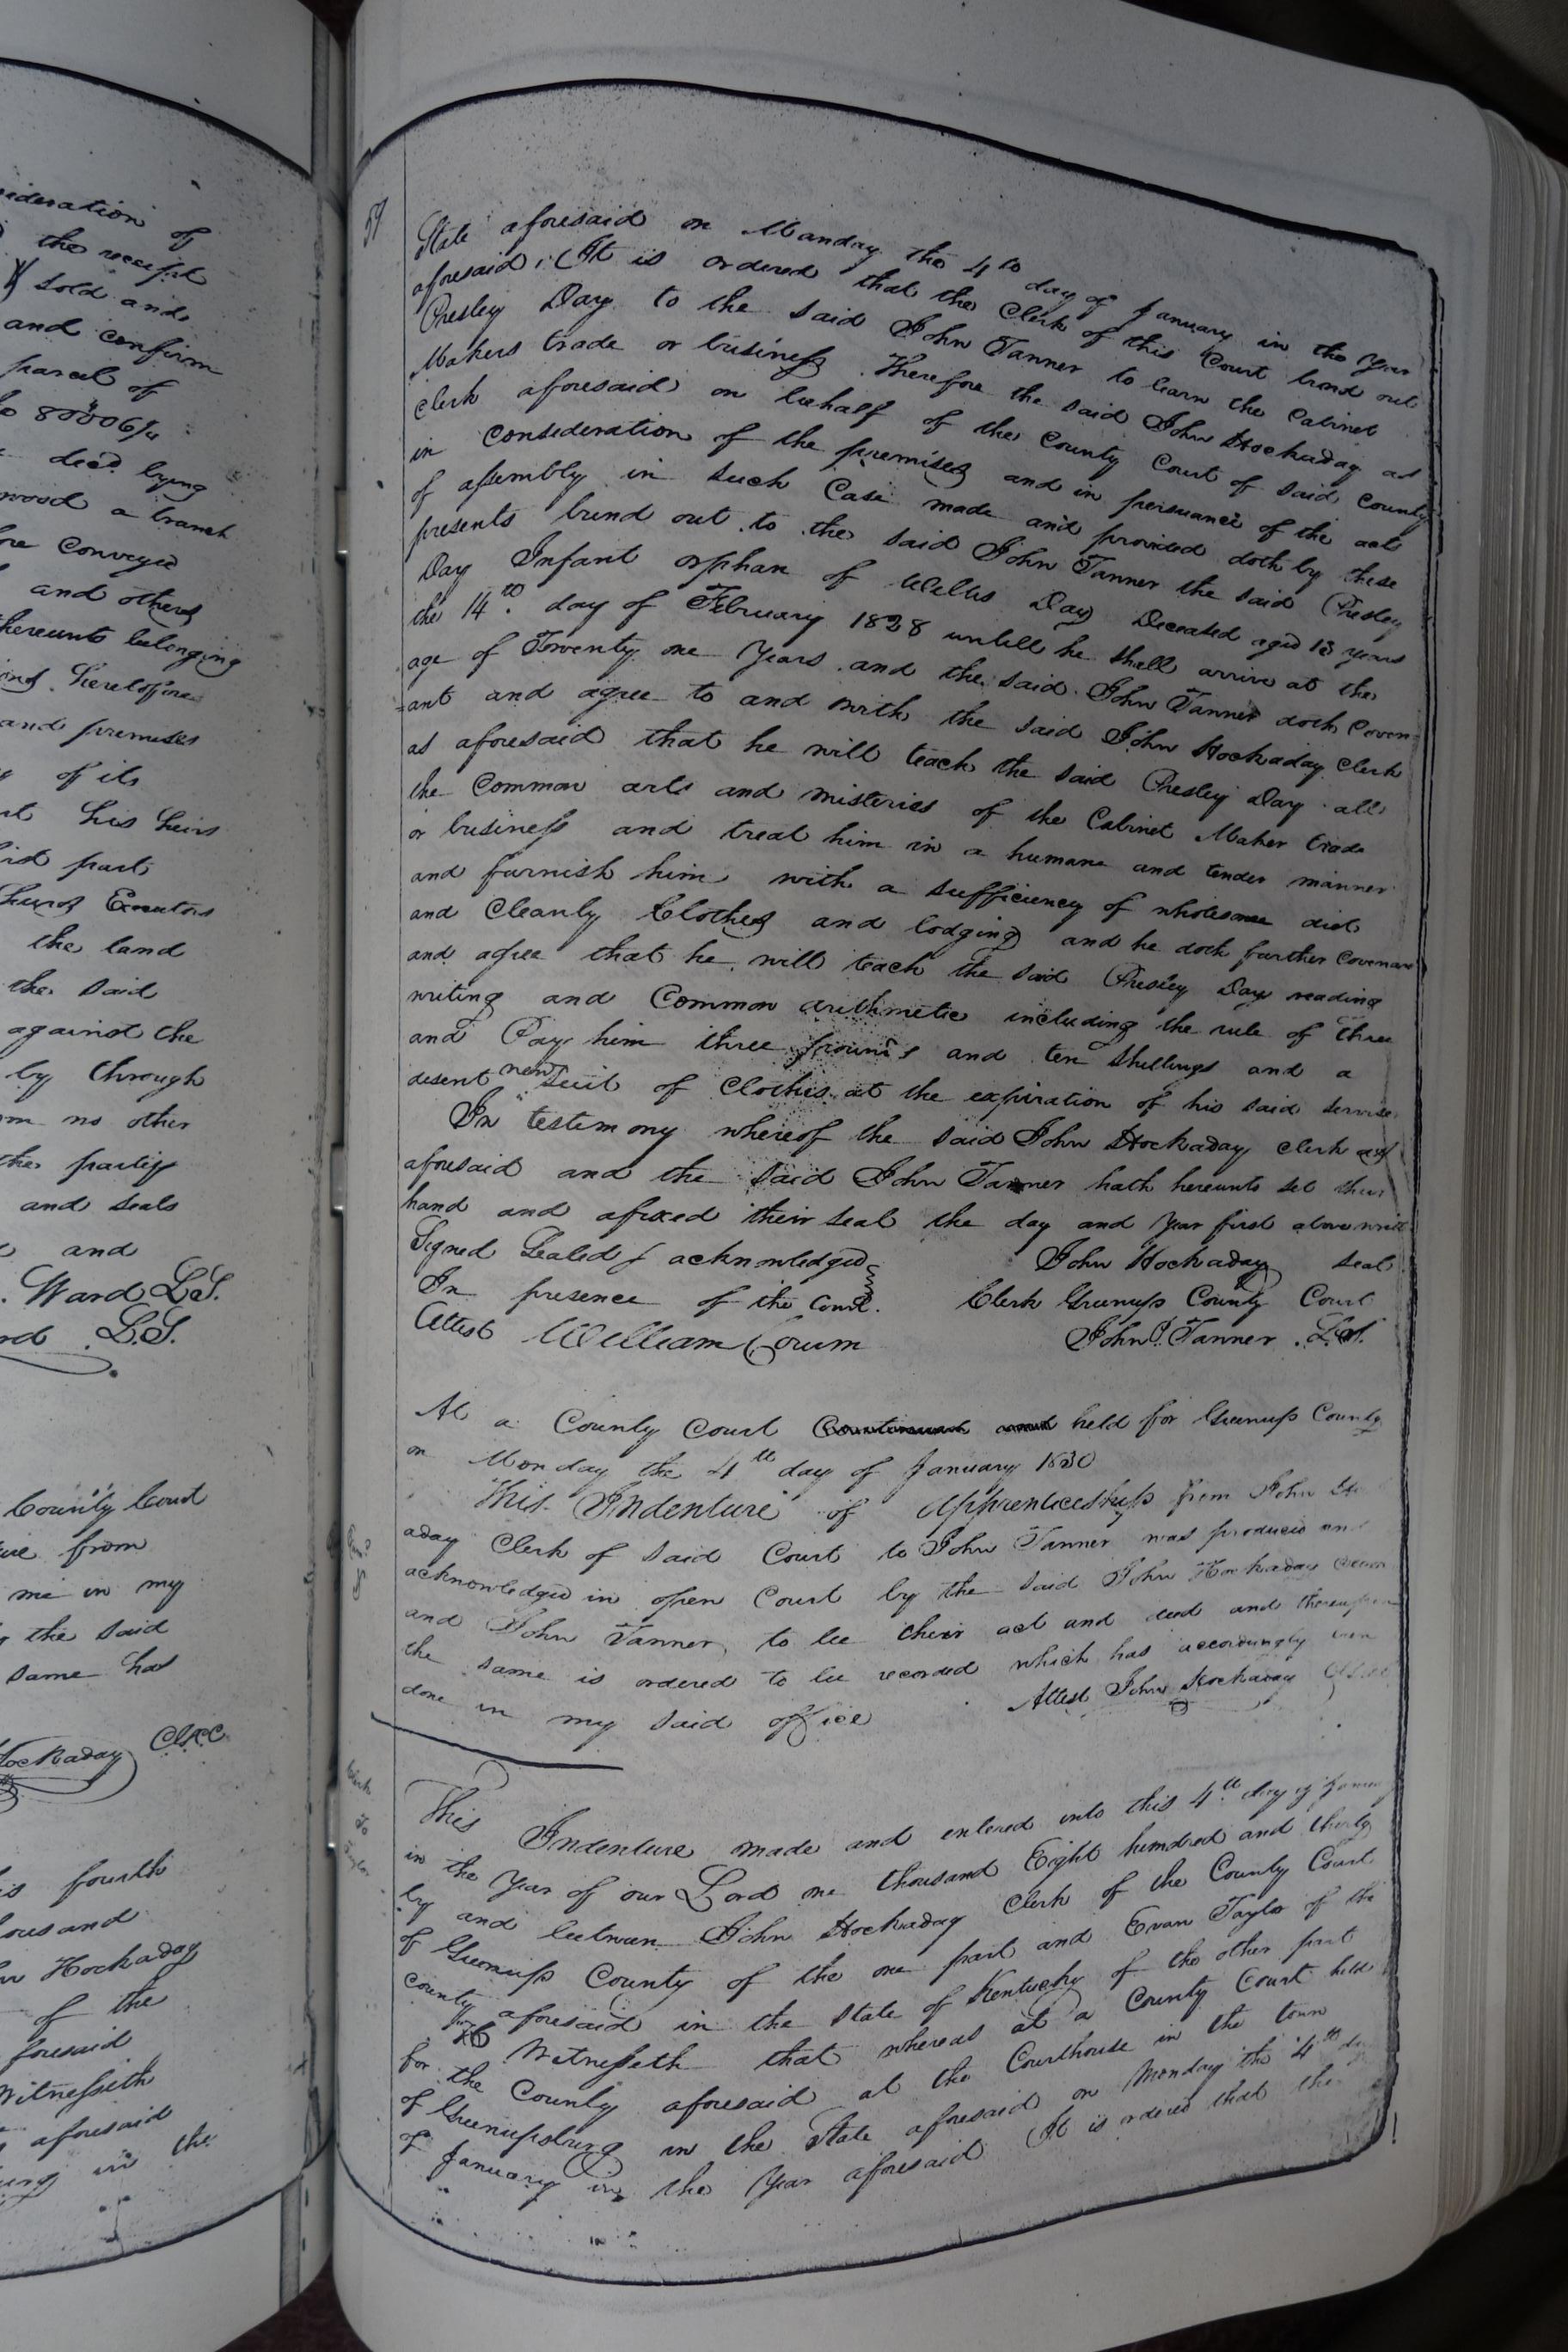 ideration of
the receipt
sold and
and confirm
parcel of
decd. lying
wood a branch
ore conveyed
and others
hereunto belonging
heretofore
and premises
of its
his heirs
part
Executors
the land
the said
against the
by through
no other
the parties
and seals
and
Ward L.S.
L.S.
County Court
from
me in my
the said
same has
Hockaday
fourth
thousand
Hockaday
of the
foresaid
Witnesseth
aforesaid
in the
State aforesaid on Manday the 4th day of January in the Year
aforesaid, It is ordered that the Clerk of this Court bind out
Presley Day to the said John Tanner to learn the Cabinet
Makers trade or business. Therefore the said John Hockaday as
Clerk aforesaid on behalf of the County Court of said County
in consideration of the premises and in persuance of the act
of assembly in such Case made and provided doth by these
presents bind out to the said John Tanner the said Presley
Day Infant orphan of Willis Day Deceased aged 13 years
the 14th. day of February 1828 untill he shall arrive at the
age of Twenty one Years and the said John Tanner doth Coven-
=ant and agree to and with the said John Hockaday Clerk
as aforesaid that he will teach the said Presley Day all
the Common arts and misteries of the Cabinet Maker trade
or business and treat him in a humane and tender manner
and furnish him with a sufficiency of wholesome diet
and Cleanly Clothes and lodging and he doth further Covenant
and agree that he will teach the said Presley Day reading
writing and Common arithmetic including the rule of three
and Pay him three pounds and ten Shillings and a
desent new Suit of Clothes at the expiration of his said service
In testimony whereof the said John Hockaday Clerk as
aforesaid and the said John Tanner hath hereunto set their
hand and afixed their seal the day and Year first above writ
Signed Sealed & acknowledged John Hockaday seal
In presence of the Court. Clerk Greenup County Court
Attest William Corum John P. Tanner L.S.
At a County Court held for Greenup County
on Monday the 4th day of January 1830
This Indenture of Apprenticeship from John
aday Clerk of said Court to John Tanner was produced and
acknowledged in open Court by the said John Hockaday
and John Tanner to be their act and deed and thereupon
the same is ordered to be recorded which has accordingly been
done in my said office Attest John Hockaday
This Indenture made and entered into this 4th day of January
in the Year of our Lord one thousand Eight hundred and thirty
by and between John Hockaday Clerk of the County Court
of Greenup County of the one part and Evan Taylor of the
County aforesaid in the State of Kentucky of the other part
Witnesseth that whereas at a County Court held
for the County aforesaid at the Courthouse in the town
of Greenupsburg in the State aforesaid on Monday the 4th day
of January in the Year aforesaid It is ordered that the